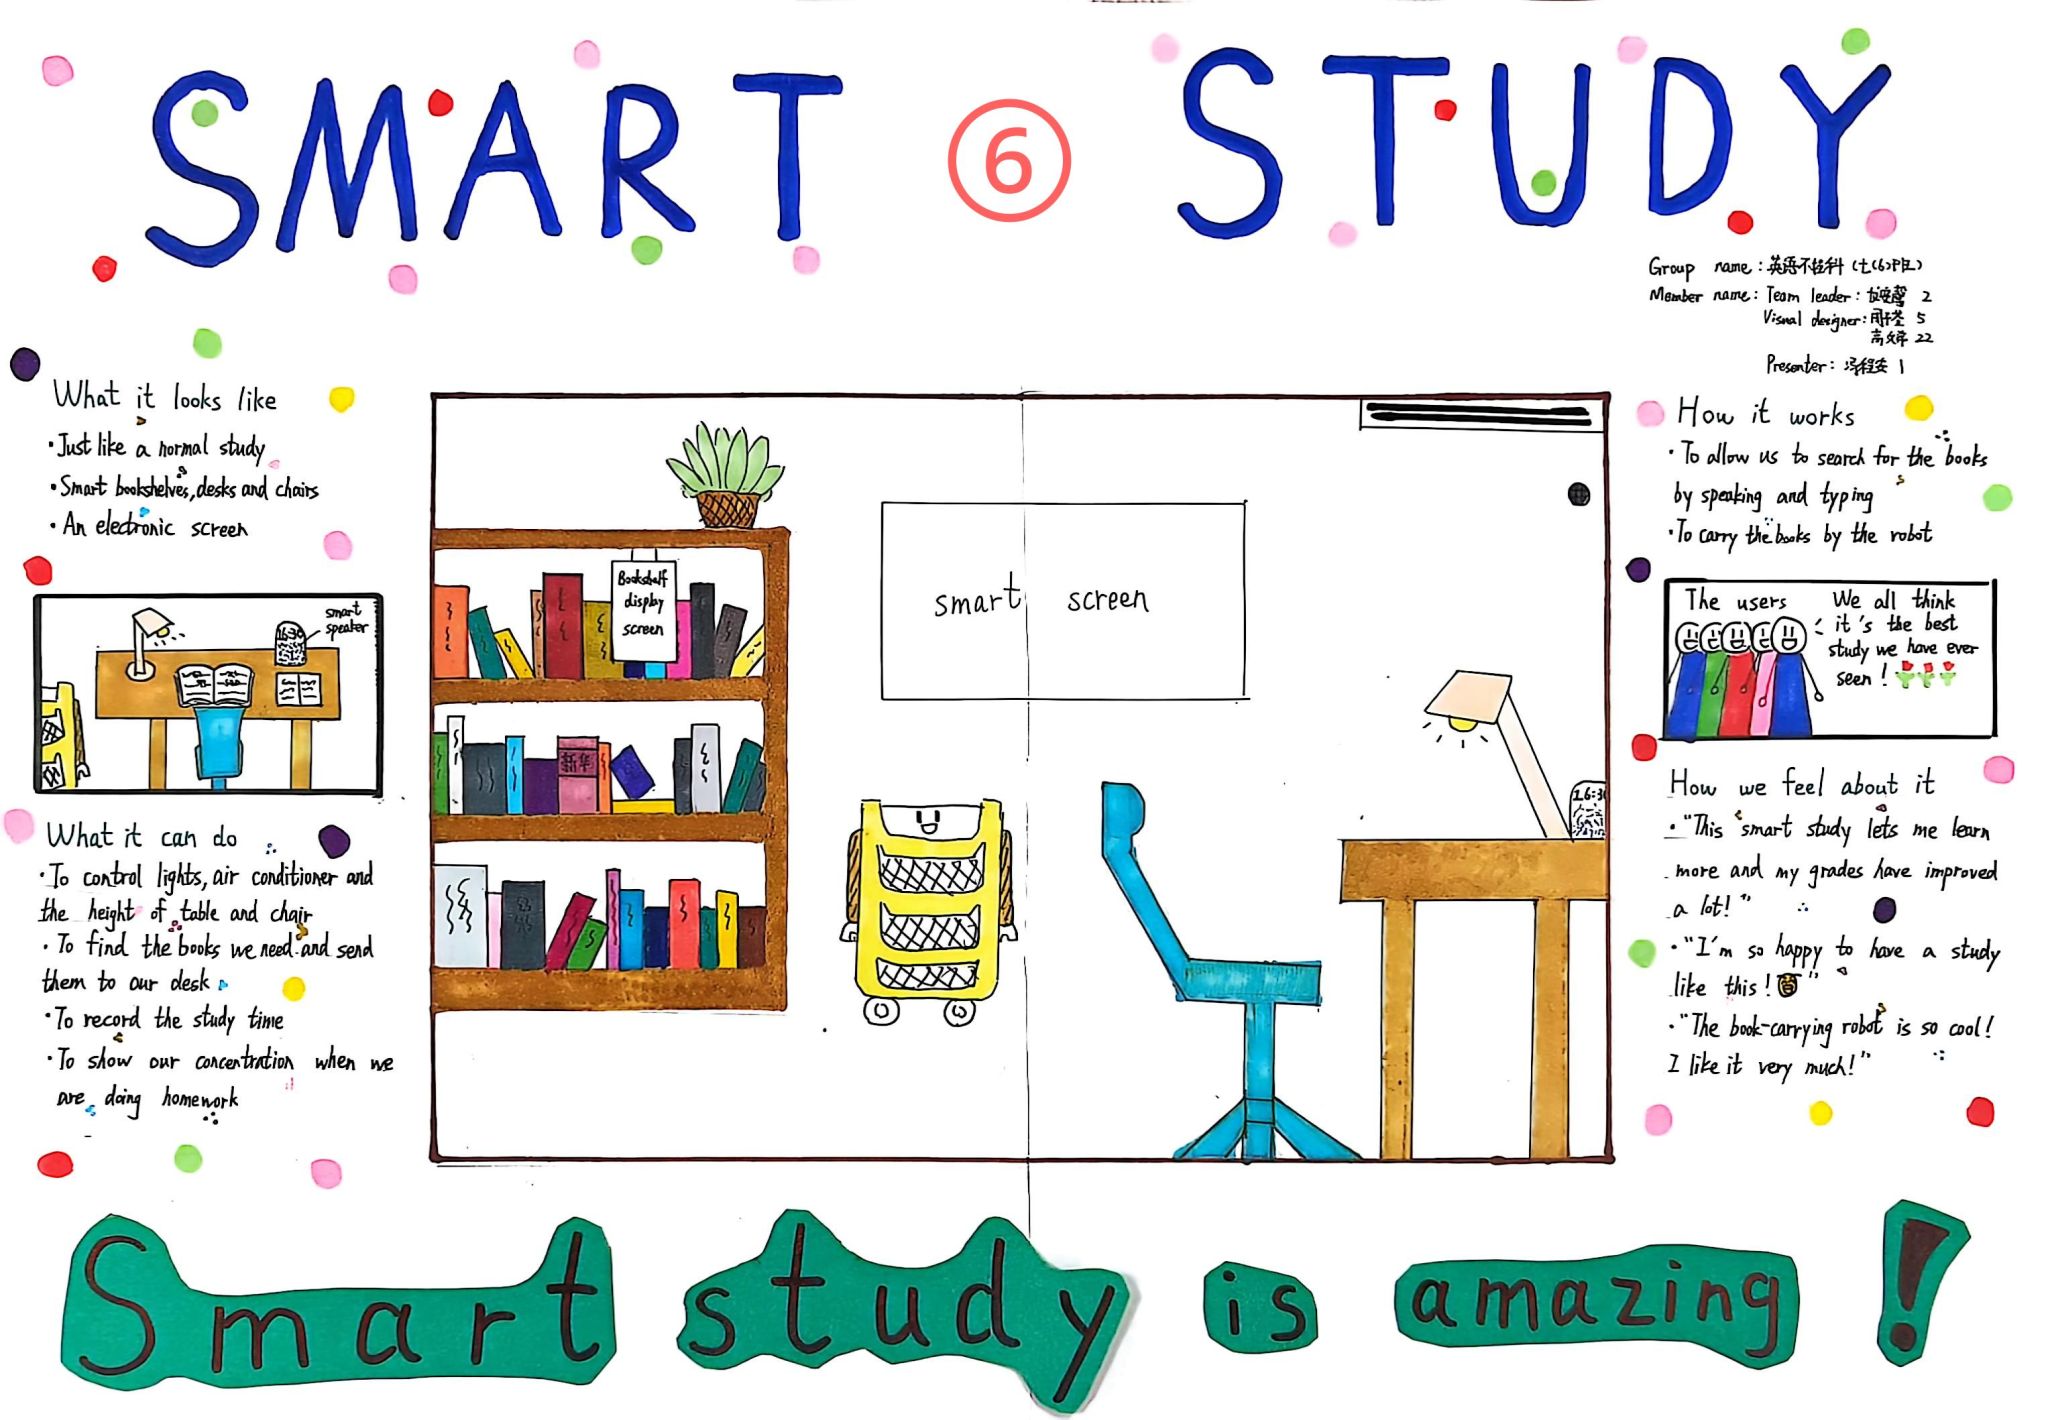 SMART ⑥ STUDY
Group name: 英语不挂科 (七(6)班)
Member name: Team leader: 2
Visual designer: 5
22
Presenter: 1
What it looks like
·Just like a normal study
·Smart bookshelves, desks and chairs
·An electronic screen
smart
speaker
16:30
What it can do
·To control lights, air conditioner and
the height of table and chair
·To find the books we need and send
them to our desk
·To record the study time
·To show our concentration when we
are doing homework
Bookshelf
display
screen
新华
smart screen
16:30
How it works
·To allow us to search for the books
by speaking and typing
·To carry the books by the robot
The users
We all think
it's the best
study we have ever
seen!
How we feel about it
·"This smart study lets me learn
more and my grades have improved
a lot!"
·"I'm so happy to have a study
like this!"
·"The book-carrying robot is so cool!
I like it very much!"
Smart study is amazing!